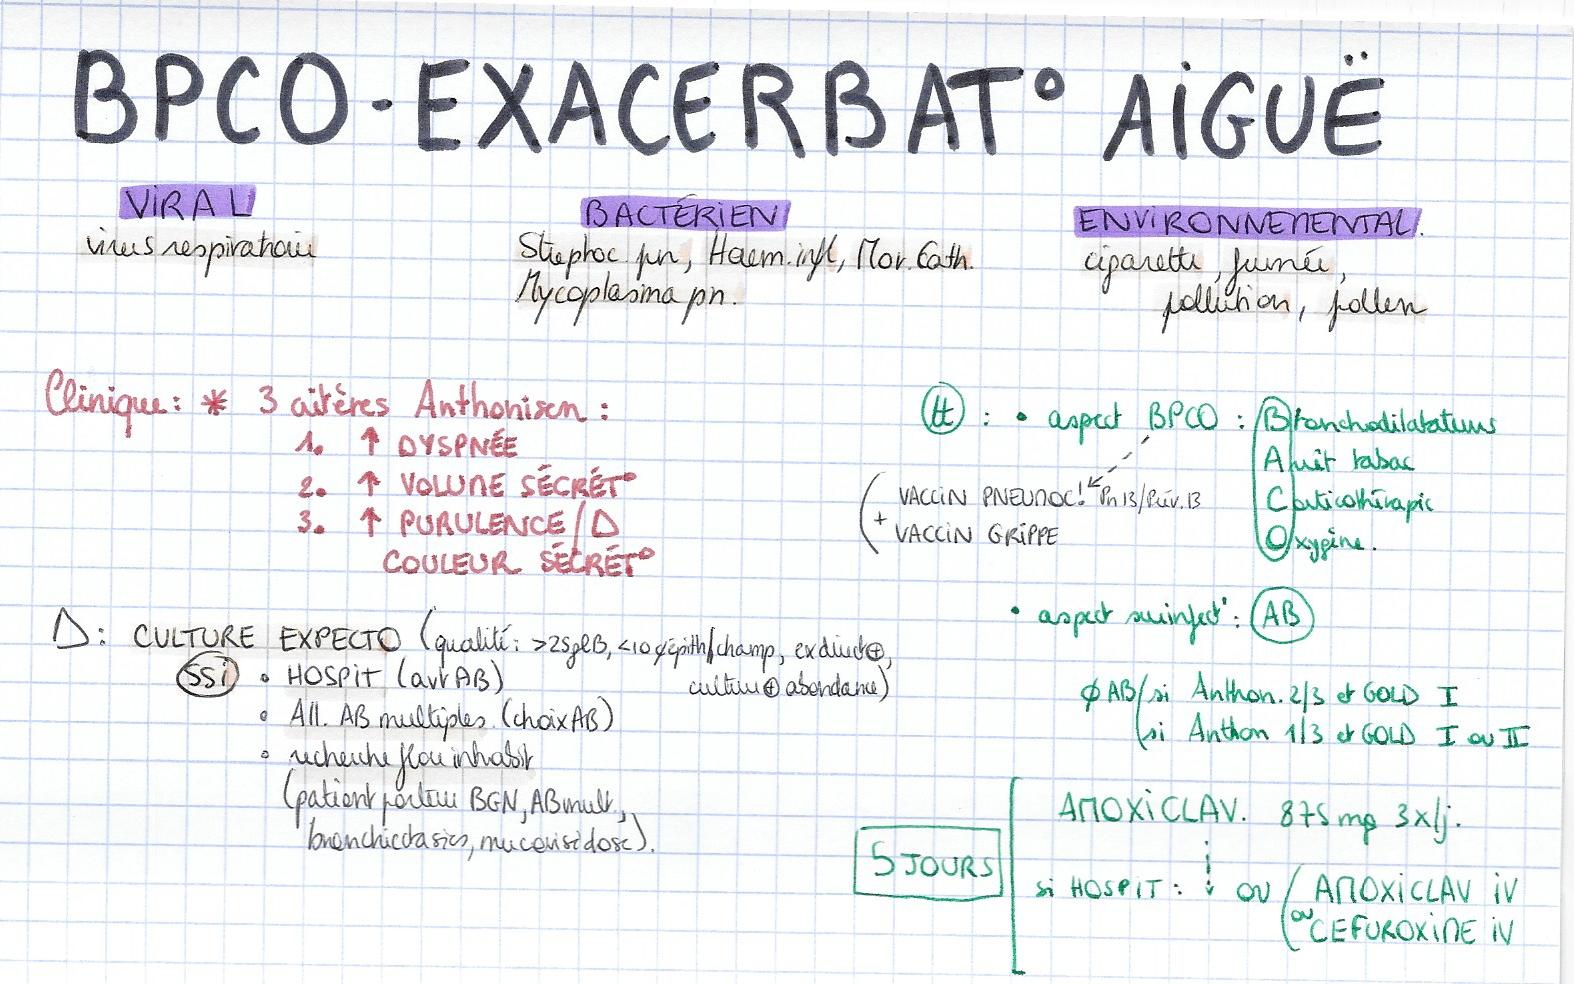 BPCO - EXACERBAT° AiGUË
ViRAL
virus respiratoire
BACTÉRIEN
Streptoc. pn, Haem. infl, Mor. Cath.
Mycoplasma pn.
ENViRONNEMENTAL.
cigarette, fumée,
pollution, pollen
Clinique: * 3 critères Anthonisen :
1. ↑ DYSPNÉE
2. ↑ VOLUME SÉCRÉT°
3. ↑ PURULENCE / Δ
COULEUR SÉCRÉT°
Δ: CULTURE EXPECTO (qualité: >25 glB, <10 ¢ épith/champ, ex direct ⊕,
culture ⊕ abondance)
SSi • HOSPiT (avt AB)
• All. AB multiples (choix AB)
• recherche flore inhabit
(patient porteur BGN, AB mult.,
bronchiectasies, mucoviscidose).
tt : • aspect BPCO : Bronchodilatateurs
Arrêt tabac
Corticothérapie
Oxygène.
( VACCiN PNEUMOC! Pn 13/Prév. 13
+ VACCiN GRiPPE
• aspect surinfect° : AB
∅ AB ( si Anthon. 2/3 et GOLD I
si Anthon 1/3 et GOLD I ou II
5 JOURS
AMOXiCLAV. 875 mg 3x/j.
si HOSPiT : ↓ OU ( AMOXiCLAV iV
ou CEFUROXiME iV